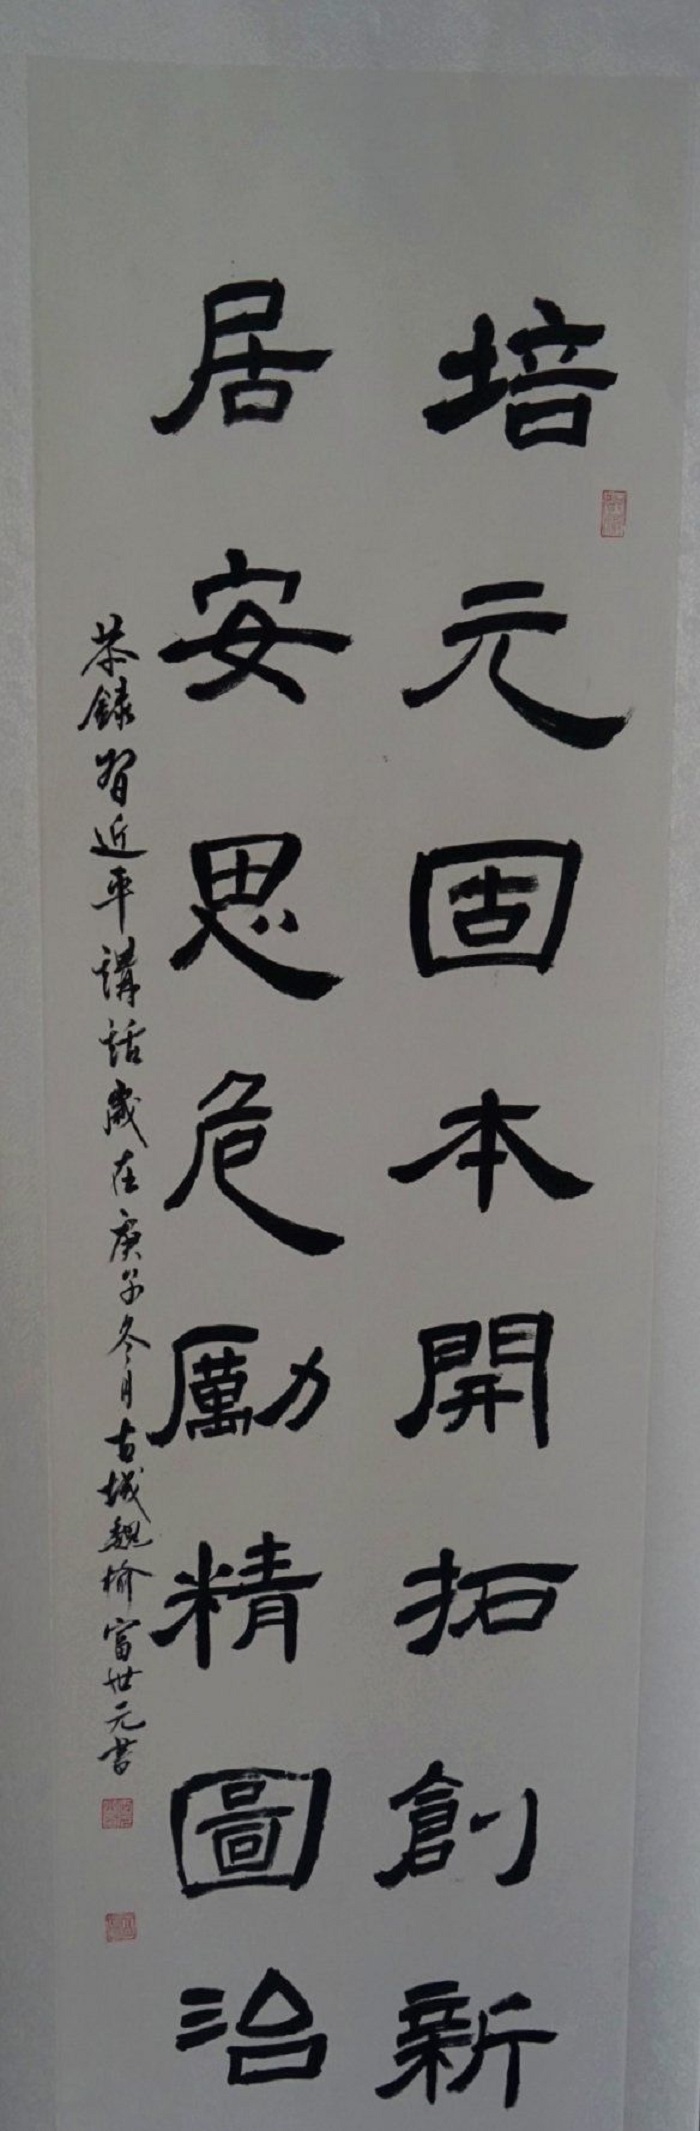 培元固本開拓創新
居安思危勵精圖治
恭録習近平講話歲在庚子冬月古城魏榆富世元書